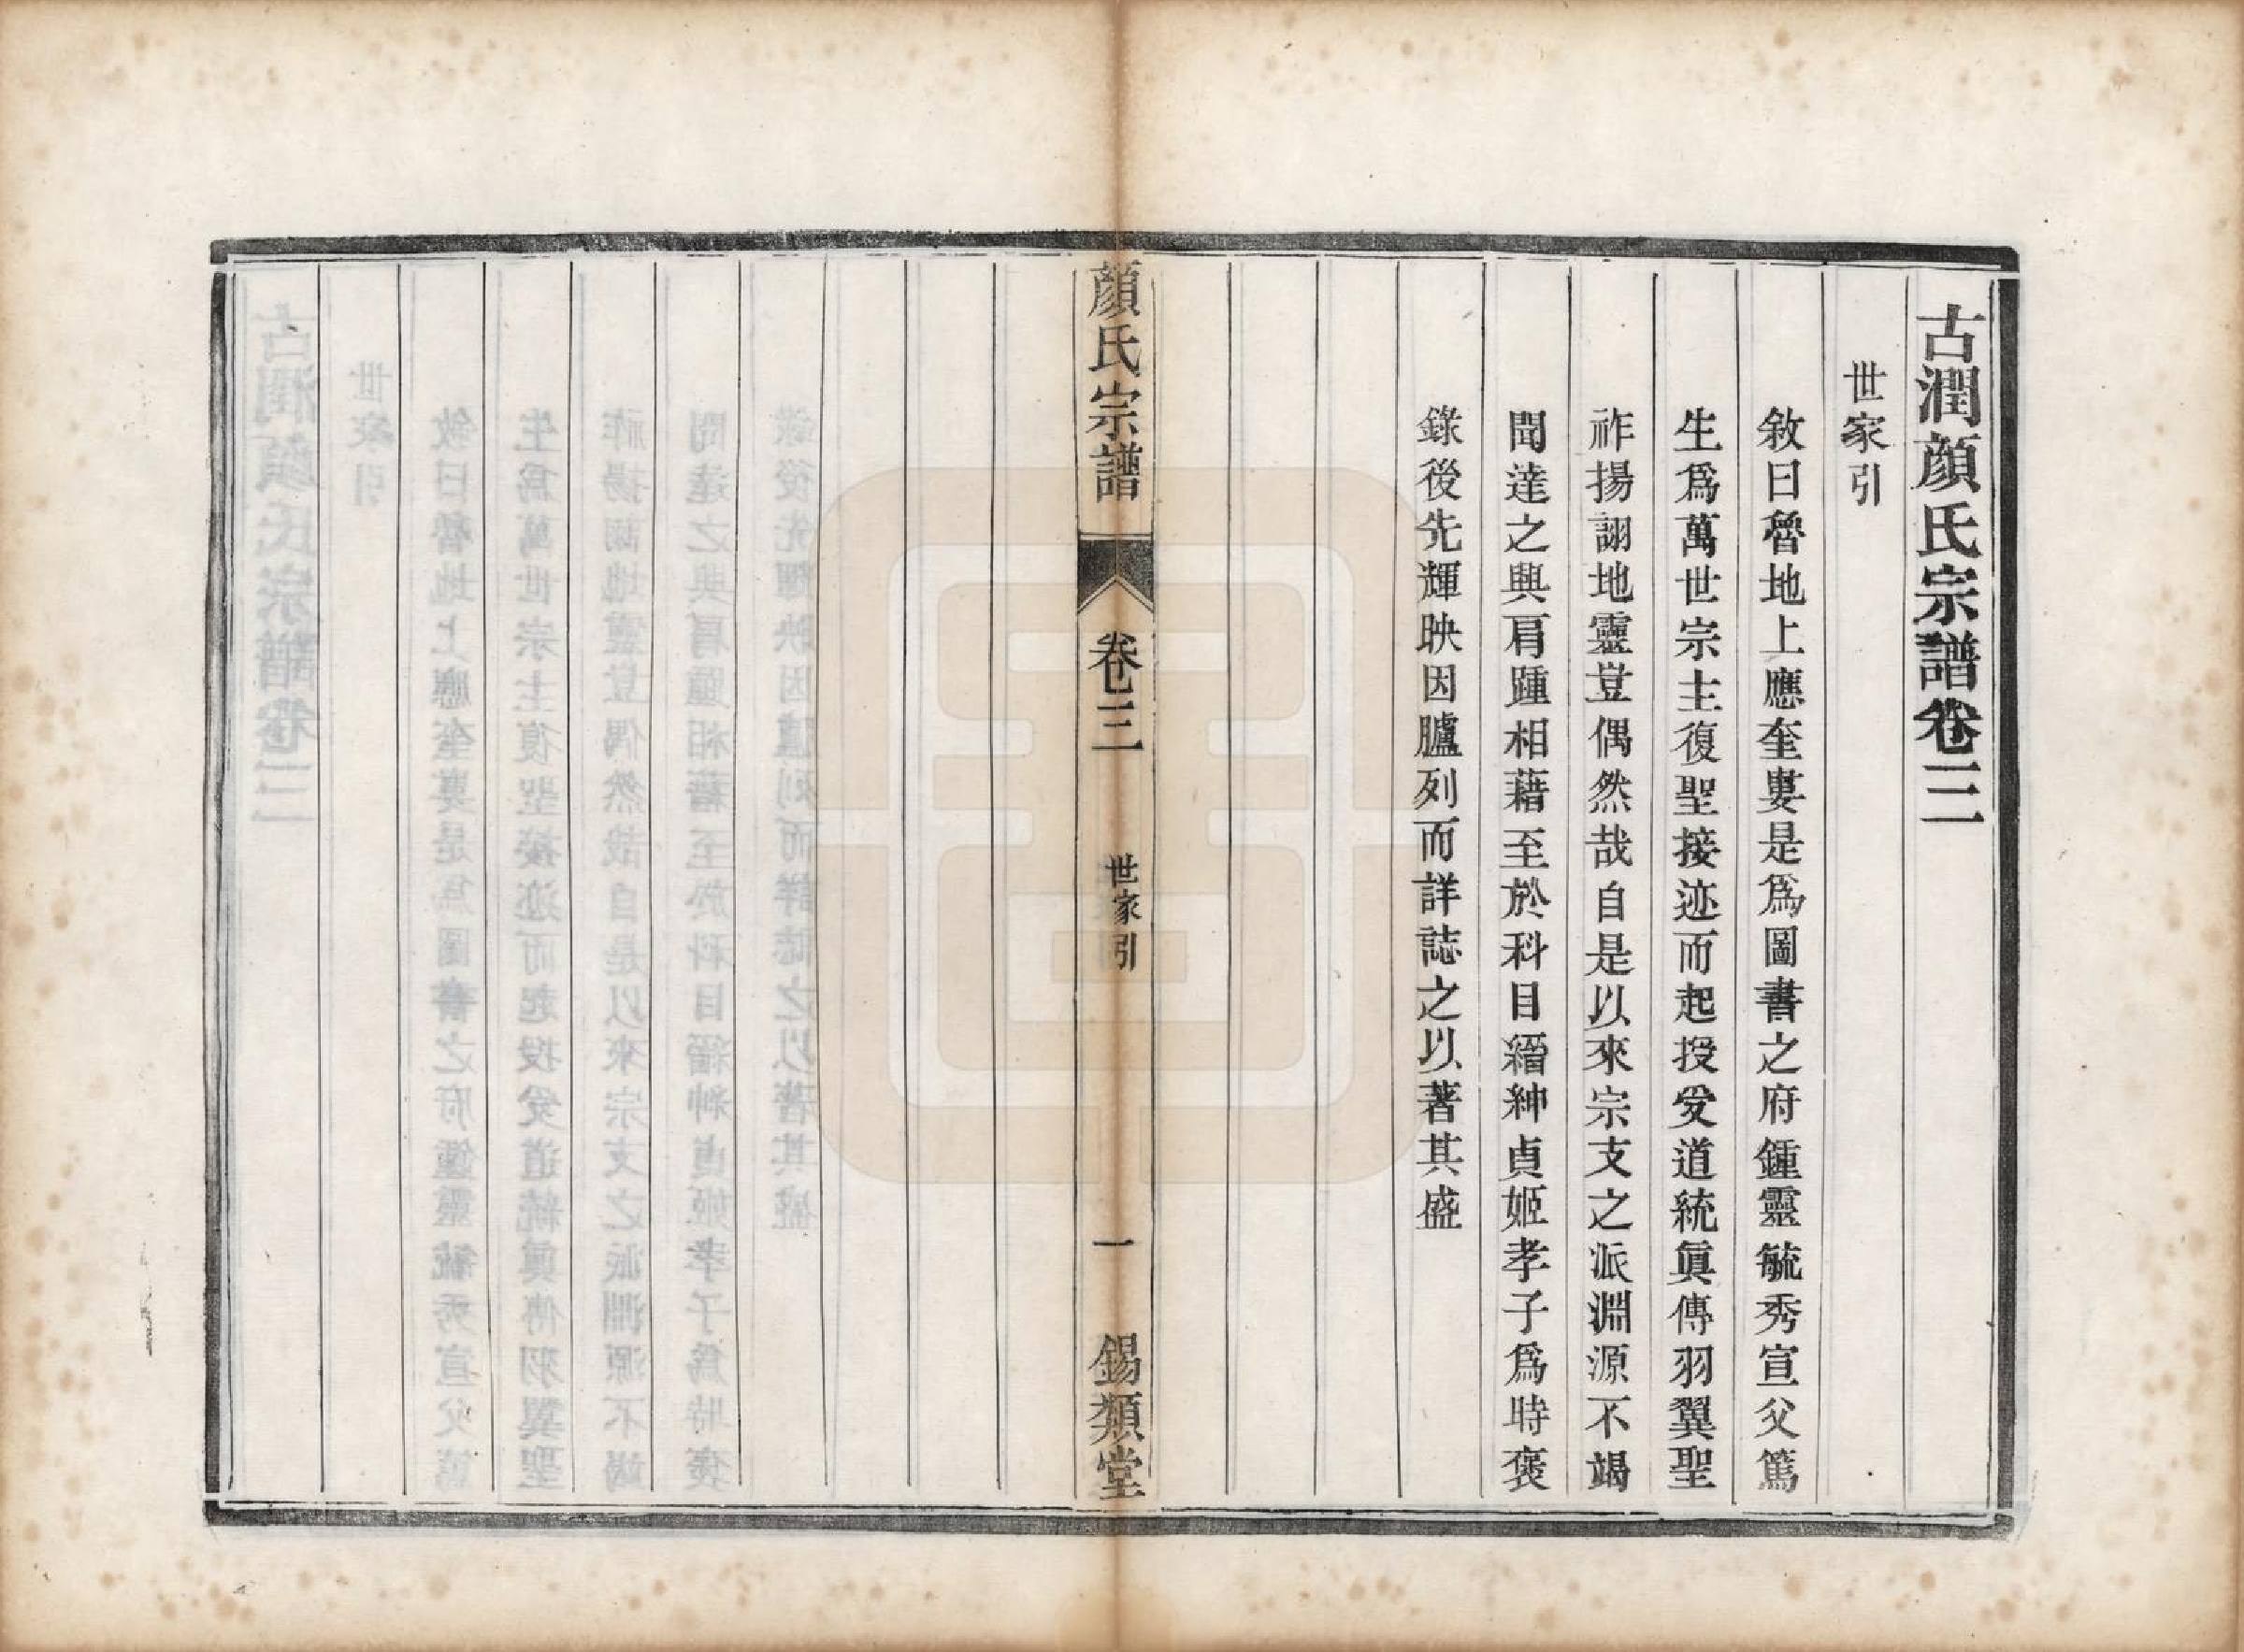 古潤顏氏宗譜卷三
世家引
敘曰魯地上應奎婁是爲圖書之府鍾靈毓秀宣父篤
生爲萬世宗主復聖接迹而起授受道統眞傳羽翼聖
祚揚詡地靈豈偶然哉自是以來宗支之派淵源不竭
聞達之輿肩踵相藉至於科目縉紳貞姬孝子爲時褒
錄後先輝映因臚列而詳誌之以著其盛
顏氏宗譜
卷三
世家引
一
錫類堂